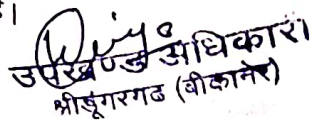 है।
उपखण्ड अधिकारी
श्रीडूंगरगढ (बीकानेर)